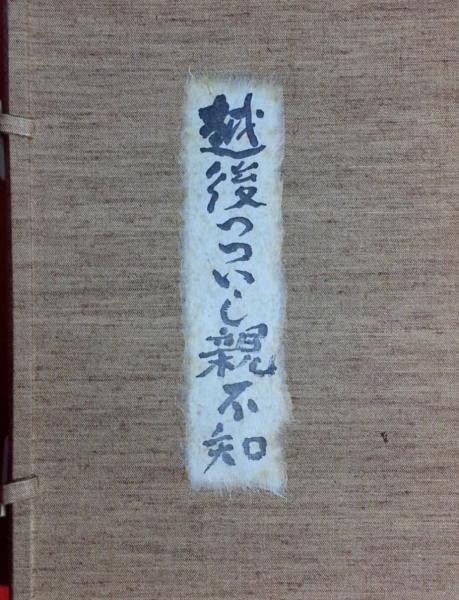 越後つついし親不知